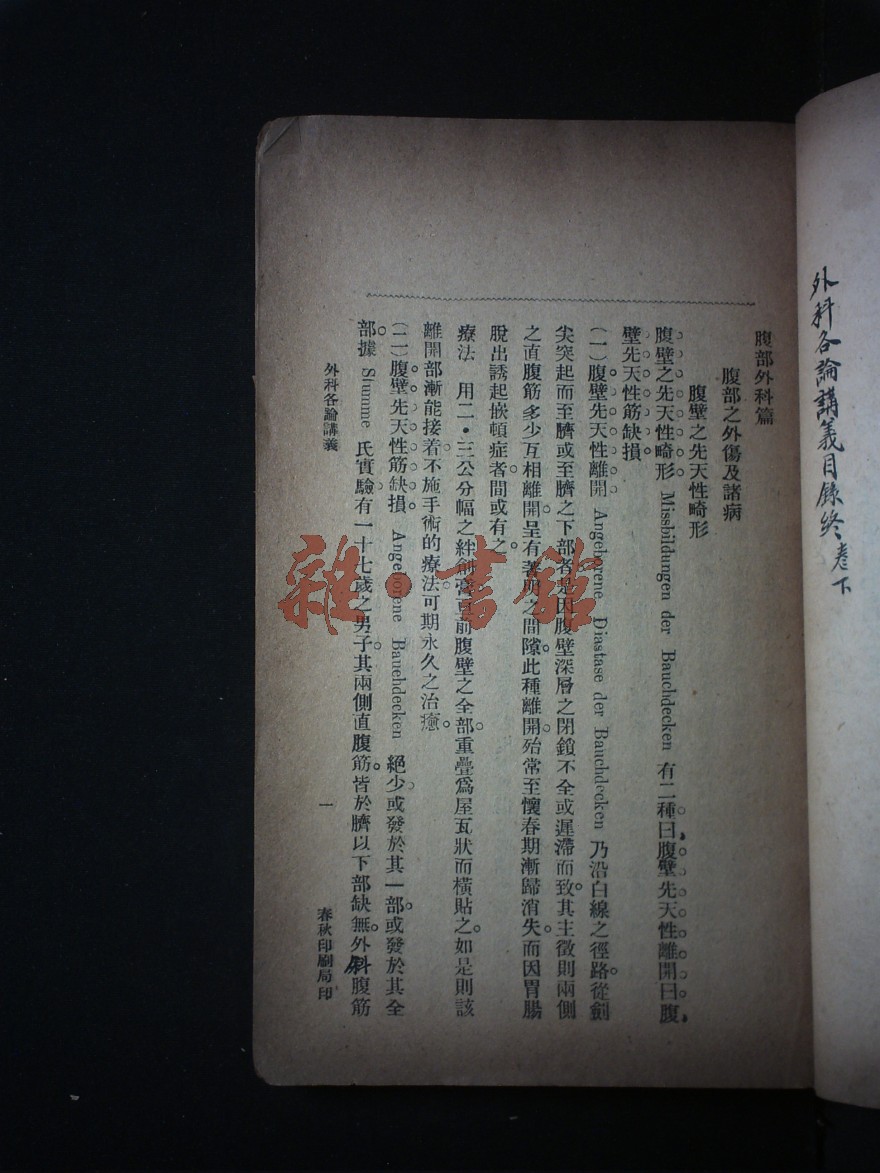 外科各論講義目錄終 卷下
腹部外科篇
腹部之外傷及諸病
腹壁之先天性畸形
腹壁之先天性畸形 Missbildungen der Bauchdecken 有二種曰腹壁先天性離開曰腹
壁先天性筋缺損
(一)腹壁先天性離開 Angeborene Diastase der Bauchdecken 乃沿白線之徑路。從劍
尖突起而至臍或至臍之下部者是因腹壁深層之閉鎖不全或遲滯而致。其主徵則兩側
之直腹筋多少互相離開。呈有著明之間隙。此種離開。殆常至懷春期漸歸消失。而因胃腸
脫出誘起嵌頓症者。間或有之。
療法 用二・三公分幅之絆創膏。自前腹壁之全部。重疊爲屋瓦狀而橫貼之。如是則該
離開部漸能接着。不施手術的療法。可期永久之治癒。
(二)腹壁先天性筋缺損。 Angeborene Bauehdecken 絕少。或發於其一部。或發於其全
部。據 Stumme 氏實驗。有一十七歲之男子。其兩側直腹筋。皆於臍以下部缺無。外斜腹筋
外科各論講義
一
春秋印刷局印
雜・書館